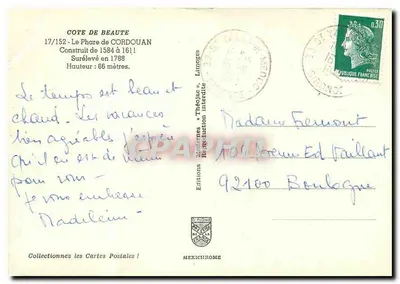 COTE DE BEAUTE
17/152 - Le Phare de CORDOUAN
Construit de 1584 à 1611
Surélevé en 1788
Hauteur : 66 mètres.
Le temps est beau et
chaud. Les vacances
bien agréables j'espère
qu'il en est de même
pour vous -
je vous embrasse
Madeleine
Collectionnez les Cartes Postales !
Editions Modernes « Théojac », Limoges
Reproduction interdite
MEXICHROME
0,30
REPUBLIQUE FRANCAISE
Madame Fremont
Avenue Ed Vaillant
92100 Boulogne
CPARTPHIL